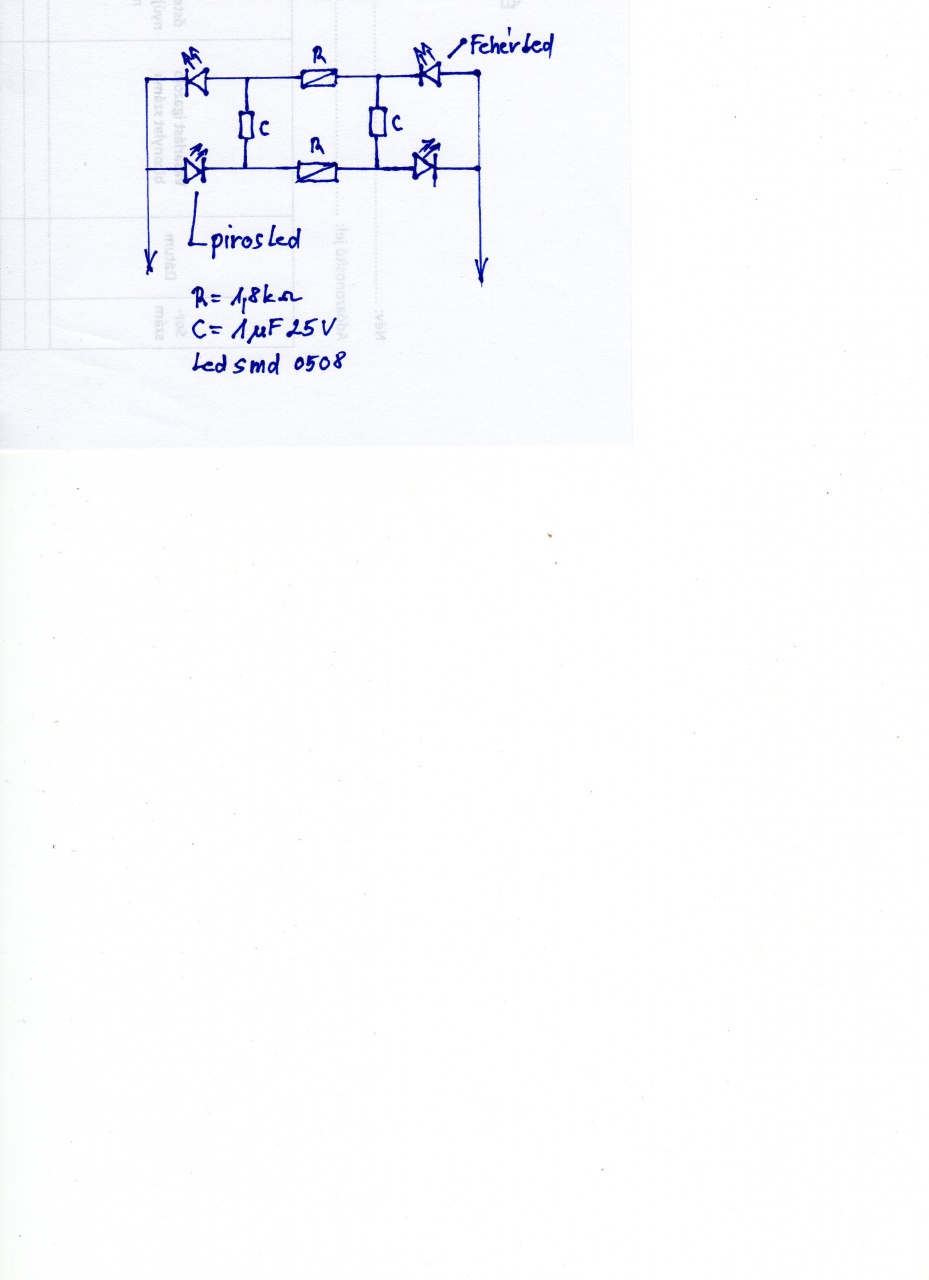 R
Fehér Led
C
C
R
piros led
R = 1,8kΩ
C = 1µF 25V
Led smd 0508